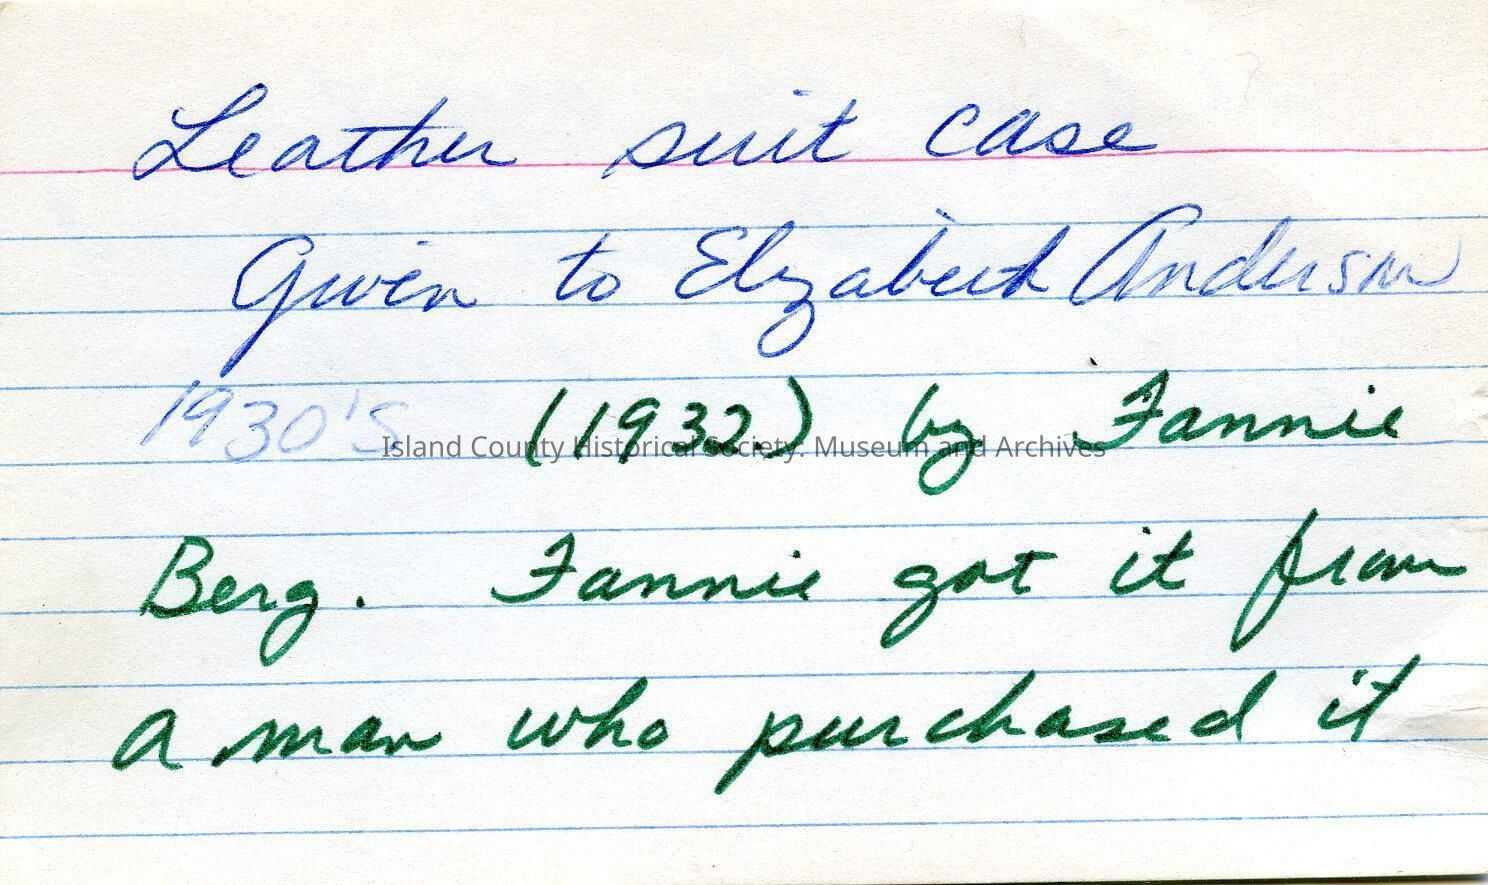 Leather suit case
Given to Elizabeth Anderson
1930's (1932.) by Fannie
Island County Historical Society. Museum and Archives
Berg. Fannie got it from
a man who purchased it